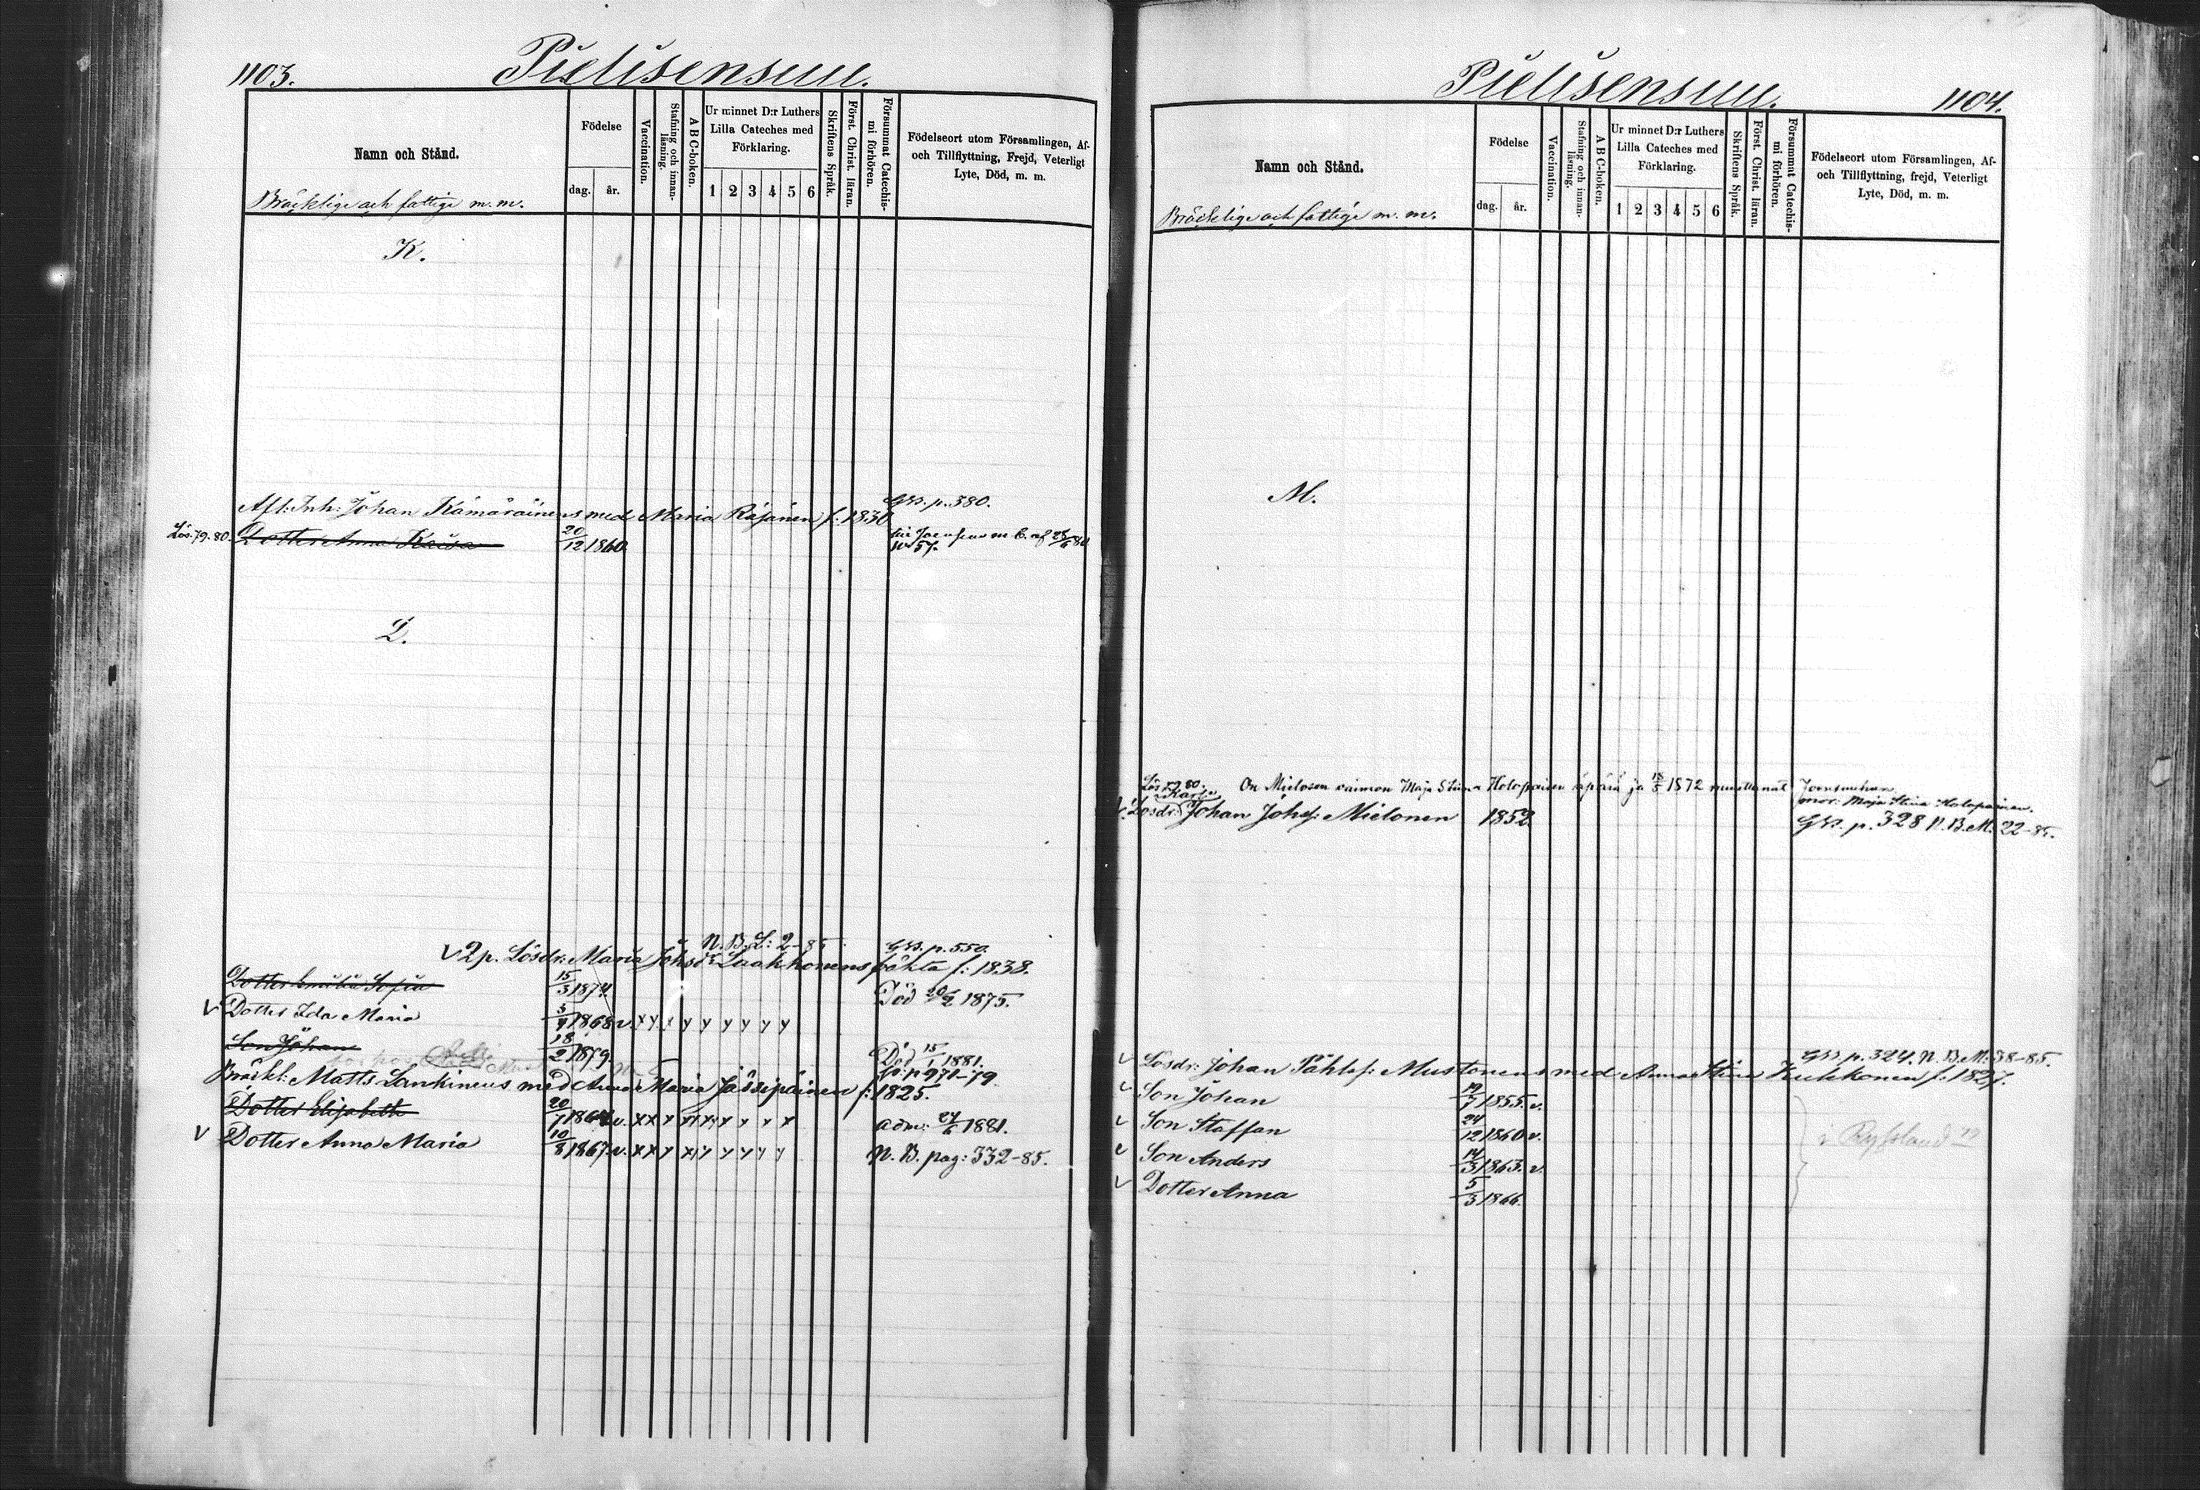 1103.
Pielisensuu.
Namn och Stånd.
Födelse
dag.
år.
Vaccination.
Stafning och innan-
läsning.
A B C-boken.
Ur minnet D:r Luthers
Lilla Cateches med
Förklaring.
1 2 3 4 5 6
Skriftens Språk.
Först. Christ. läran.
Försummat Catechis-
mi förhören.
Födelseort utom Församlingen, Af-
och Tillflyttning, Frejd, Veterligt
Lyte, Död, m. m.
Bräcklige och fattige m. m.
K.
GB. p. 380.
Afl: Inh: Johan Kämäräinens med Maria Räsänen f. 1830
Lös. 79. 80. Dotter Anna Kaisa 20/12 1860.
L.
N. B. L: 2-85 GB. p. 550.
v 2p. Lösdr: Maria Johsdr Laakkonens oäkta f: 1838.
Dotter Sofia 15/3 1874. Död 20/2 1875.
v Dotter Ida Maria 1868 v. x y x y y y y y y
Son Johan 18/2 1879. Död 15/1 1881.
fr. p 971-79.
Bräckl: Matts Lankinens med Anna Maria Jässipäinen f: 1825.
Dotter Elisabeth 20/7 1864 v. adm: 24/6 1881.
v Dotter Anna Maria 10/8 1867. v. N. B. pag: 332-85.
Pielisensuu.
1104.
Namn och Stånd.
Födelse
dag.
år.
Vaccination.
Stafning och innan-
läsning.
A B C-boken.
Ur minnet D:r Luthers
Lilla Cateches med
Förklaring.
1 2 3 4 5 6
Skriftens Språk.
Först. Christ. läran.
Försummat Catechis-
mi förhören.
Födelseort utom Församlingen, Af-
och Tillflyttning, frejd, Veterligt
Lyte, Död, m. m.
Bräcklige och fattige m. m.
M.
On Mielosen vaimon Maja Stina Holopaisen äpärä ja 1872 muuttanut Joensuuhun
mor: Maja Stina Holopainen.
v. Lösdr: Johan Johsf: Mielonen 1852. GB. p. 328 N. B. M: 22-85.
GB. p. 324. N. B. M: 38-85.
v Lösdr: Johan Påhlsf: Mustonens med Anna Stina Kukkonen f: 1827.
v Son Johan 19/7 1855. v.
v Son Staffan 24/12 1860. v. i Ryssland
v Son Anders 14/3 1863. v.
v Dotter Anna 5/3 1866.